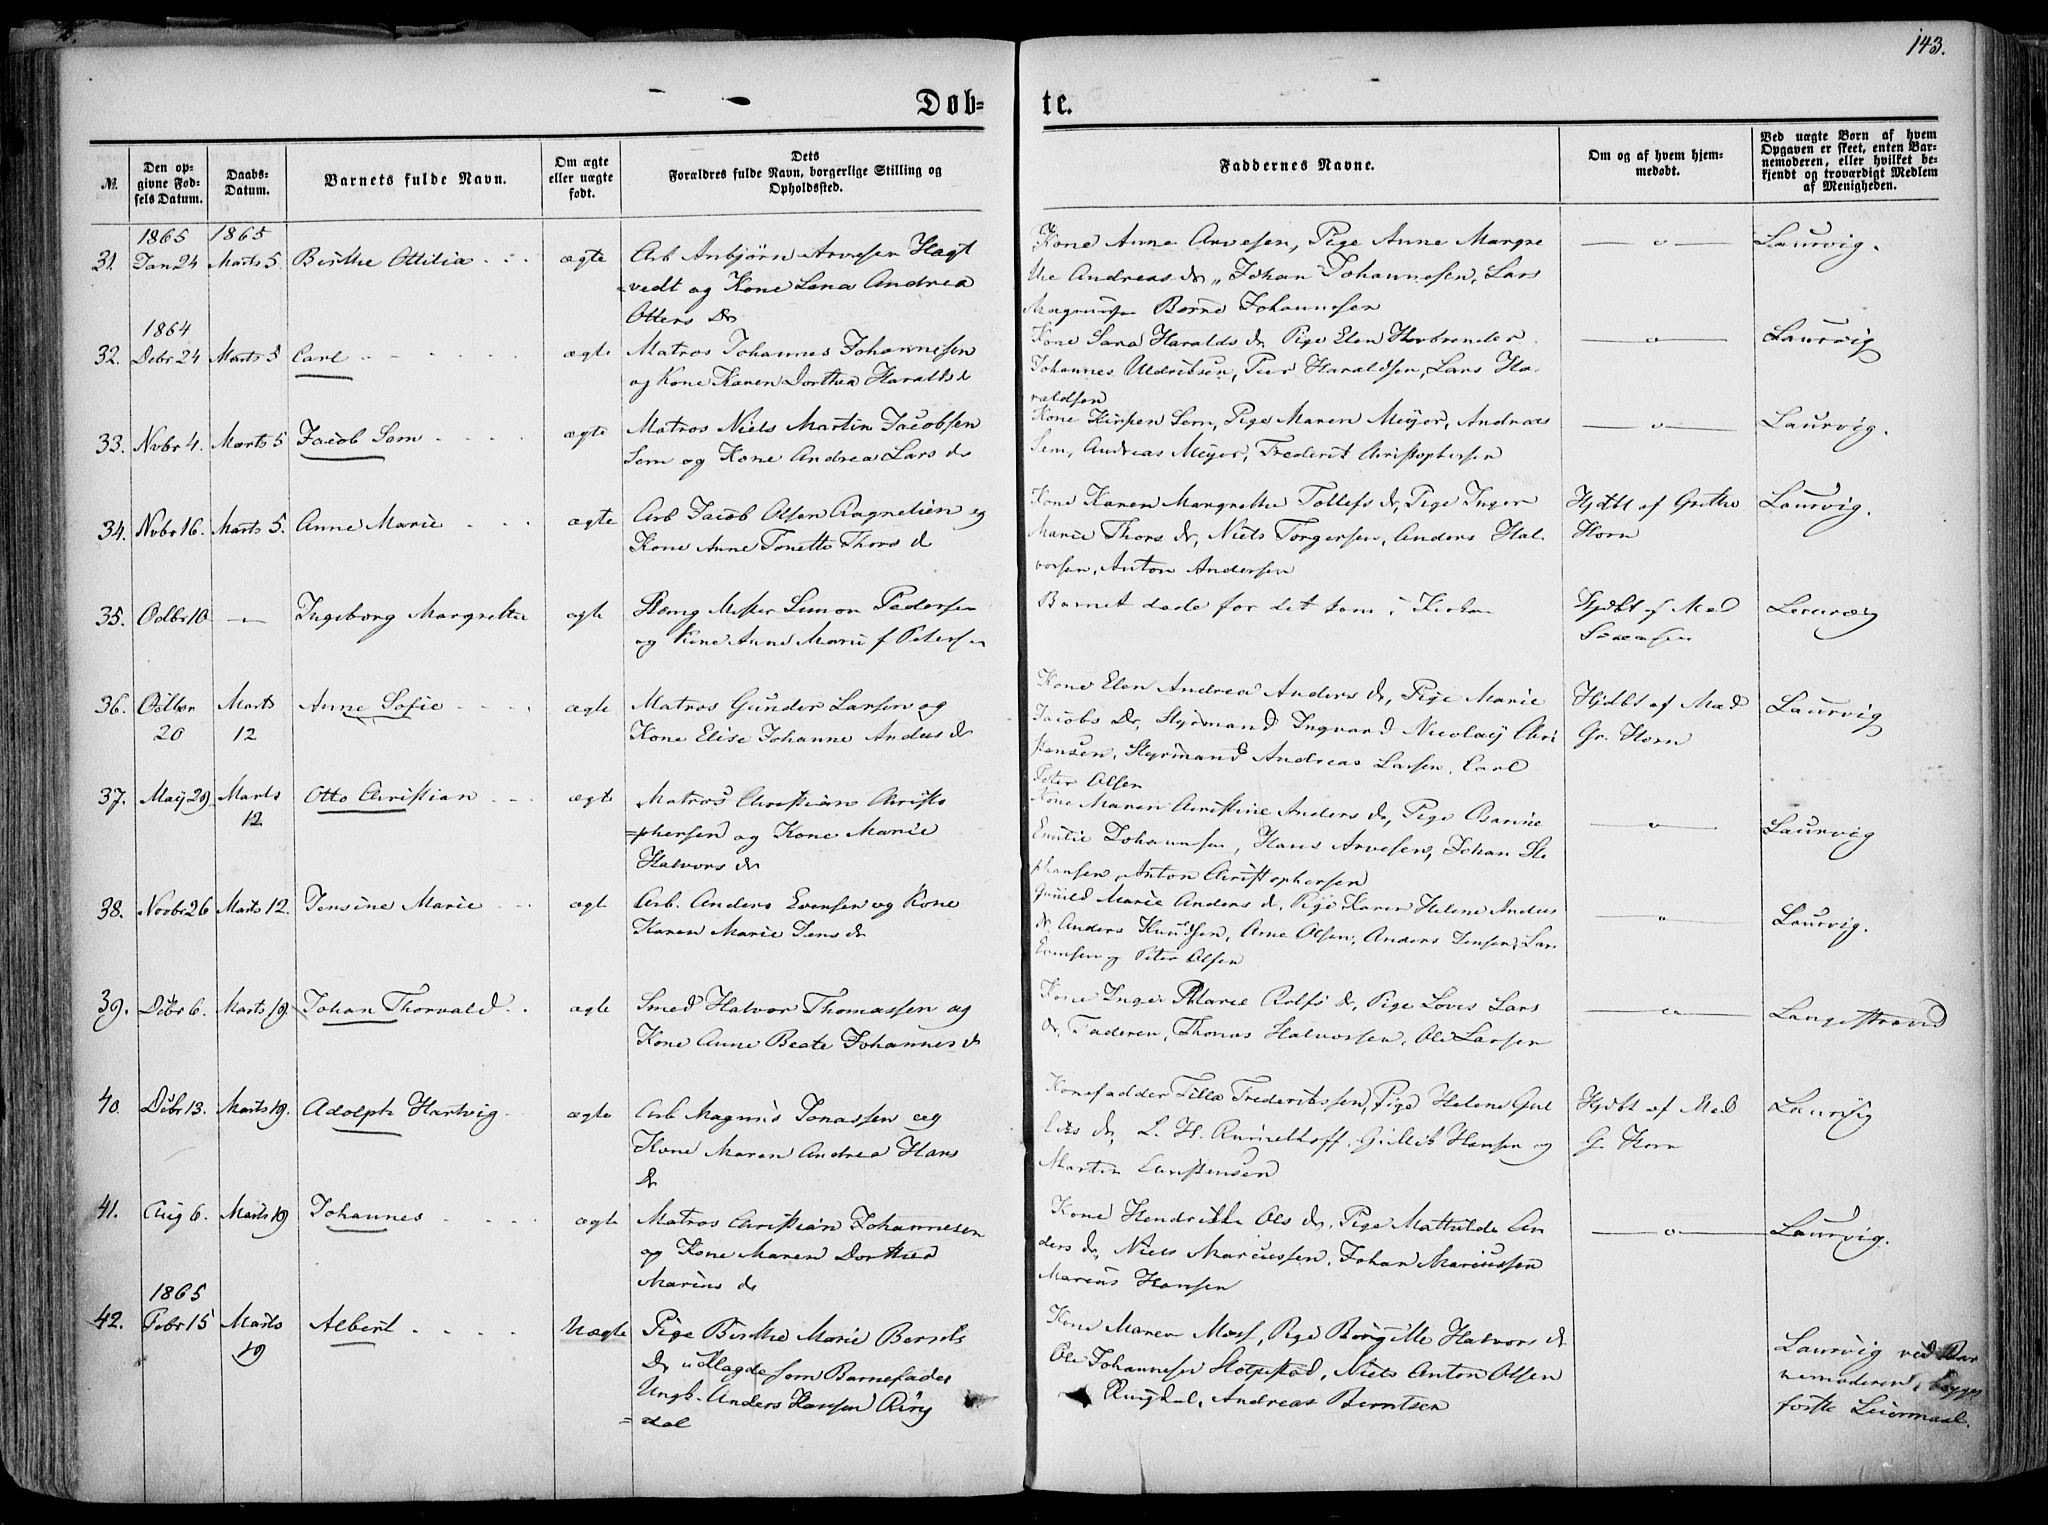 143.
Døb-
te.
№.
Den op-
givne Fød-
sels Datum.
Daabs-
Datum.
Barnets fulde Navn.
Om ægte
eller uægte
født.
Dets
Forældres fulde Navn, borgerlige Stilling og
Opholdssted.
Faddernes Navne.
Om og af hvem hjem-
medøbt.
Ved uægte Børn af hvem
Opgaven er skeet, enten Bar-
nemoderen, eller hvilket be-
kjendt og troværdigt Medlem
af Menigheden.
1865 1865
31. Jan 24 Marts 5 Birthe Ottilia ægte
Arb Anbjørn Arvesen Hægt
=vedt og Kone Lena Andrea
Otters Dr
Kone Anne Arvesen, Pige Anne Margre
the Andreas dr, Johan Johannesen, Lars
Johannesen
Laurvig.
1864
32. Debr 24 Marts 5 Carl ægte
Matros Johannes Johannesen
og Kone Karen Dorthea Haralds d
Kone Sara Haralds dr, Pige Elen
Johannes Uldriksen, Peer Haraldsen, Lars Ha-
raldsen
Laurvig
33. Nvbr 4. Marts 5 Jacob Sem ægte
Matros Niels Martin Jacobsen
Sem og Kone Andrea Lars d
Kone Kirsten Sem, Pige Maren Meÿer, Andreas
Sem, Andreas Meÿer, Frederik Christophersen
Laurvig.
34. Nvbr 16. Marts 5. Anne Marie ægte
Arb Jacob Olsen Rognelien og
Kone Anne Tonette Thors d
Kone Karen Margrethe Tollefs dr, Pige Inger
Marie Thors dr, Niels Torgersen, Anders Hal-
vorsen, Anton Andersen
Hjdbt af Grethe
Horn
Laurvig.
35. Octbr 10 Ingeborg Margrethe ægte
Simon Pedersen
og Kone Anne Marie f Petersen
Barnet døde før det kom i Kirken
Hjdbt af Mad
Sørensen
Laurvig
36. Octbr
20
Marts
12
Anne Sofie ægte
Matros Gunder Larsen og
Kone Elise Johanne Anders d
Kone Elen Andrea Anders dr, Pige Marie
Jacobs Dr, Styrmand Ingvard Nicolaÿ Chri
stensen, Styrmand Andreas Larsen, Carl
Peter Olsen
Hjdbt af Mad
Gr. Horn
Laurvig
37. Maÿ 29. Marts
12
Otto Christian ægte
Matros Christian Christo
=phersen og Kone Marie
Halvors dr
Kone Maren Christine Anders dr, Pige Osarine
Emilie Johannesen, Hans Arvesen, Johan Ste
phansen, Anton Christophersen
Laurvig
38. Novbr 26 Marts 12. Jensine Marie ægt
Arb. Anders Evensen og Kone
Karen Marie Jens dr
Gunild Marie Anders d, Pige Karen Helene Anders
dr, Anders Knudsen, Arne Olsen, Anders Jensen, Lars
Evensen og Peter Olsen
Laurvig.
39. Dcbr 6. Marts 19. Johan Thorvald ægte
Smed Halvor Thomassen og
Kone Anne Beate Johannes d
Kone Inger Marie Rolfs dr, Pige Lovis Lars
dr, Faderen, Thomas Halvorsen, Ole Larsen
Langestrand
40. Dcbr 13. Marts 19. Adolph Hartvig ægte
Arb Magnus Jonassen og
Kone Maren Andrea Hans
Dr
Konefadder Tilla Frederiksen, Pige Helene Gul
liks dr, L. H. Rummelhoff, Gullik Hansen og
Martin Christensen
Hjdbt af Mad
G. Horn
Laurvig
41. Aug 6. Marts 19 Johannes ægte
Matros Christian Johannesen
og Kone Maren Dorthea
Marius dr
Kone Hendrikke Ols dr, Pige Mathilde An
ders dr, Niels Marcussen, Johan Mariussen
Marius Hansen
Laurvig.
1865
42. Febr 15 Marts
19
Albert Uægte
Pige Birthe Marie Bersets
Dr udlagde som Barnefader
Ungk. Anders Hansen Ring
=dal
Kone Maren Moss, Pige Børgitte Halvors d
Ole Johannesen, Niels Anton Olsen
Ringdal, Andreas Berntsen
Laurvig ved Bar
nemoderen, begges
første Leiermaal.